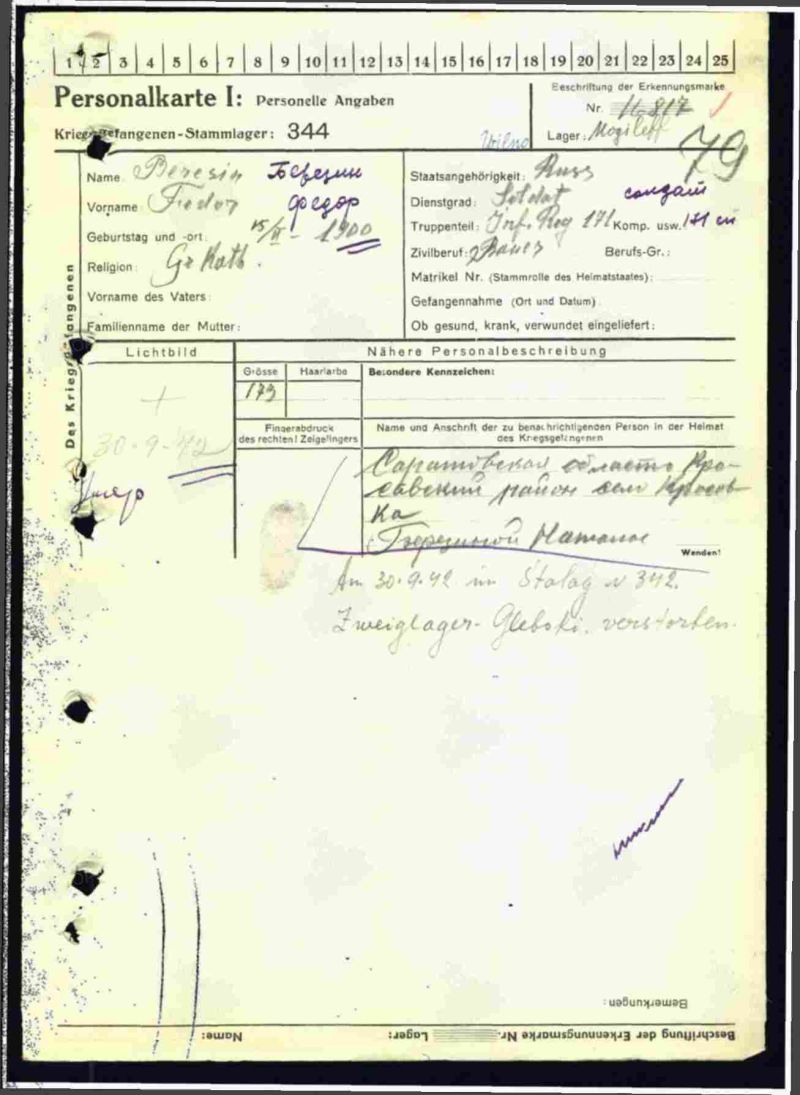 1 2 3 4 5 6 7 8 9 10 11 12 13 14 15 16 17 18 19 20 21 22 23 24 25
Personalkarte I: Personelle Angaben
Beschriftung der Erkennungsmarke
Nr. 11817
Kriegsgefangenen-Stammlager: 344
Wilno
Lager: Mogileff
79
Des Kriegsgefangenen
Name: Beresin Березин
Vorname: Fedor Федор
Geburtstag und -ort: 1900
Religion: Gr Kath.
Vorname des Vaters:
Familienname der Mutter:
Staatsangehörigkeit: Russ
Dienstgrad: Soldat солдат
Truppenteil: Inf. Reg 171 Komp. usw. 171 сп
Zivilberuf: Bauer Berufs-Gr.:
Matrikel Nr. (Stammrolle des Heimatstaates):
Gefangennahme (Ort und Datum)
Ob gesund, krank, verwundet eingeliefert:
Lichtbild
30-9-42
Умер
Nähere Personalbeschreibung
Grösse Haarfarbe Besondere Kennzeichen:
173
Fingerabdruck
des rechten! Zeigefingers
Name und Anschrift der zu benachrichtigenden Person in der Heimat
des Kriegsgefangenen
Саратовская область
район село
ка
Березиной
Wenden!
Am 30.9.42 im Stalag 342.
Zweiglager-Glebski. verstorben.
Bemerkungen:
Beschriftung der Erkennungsmarke Nr. Lager: Name: